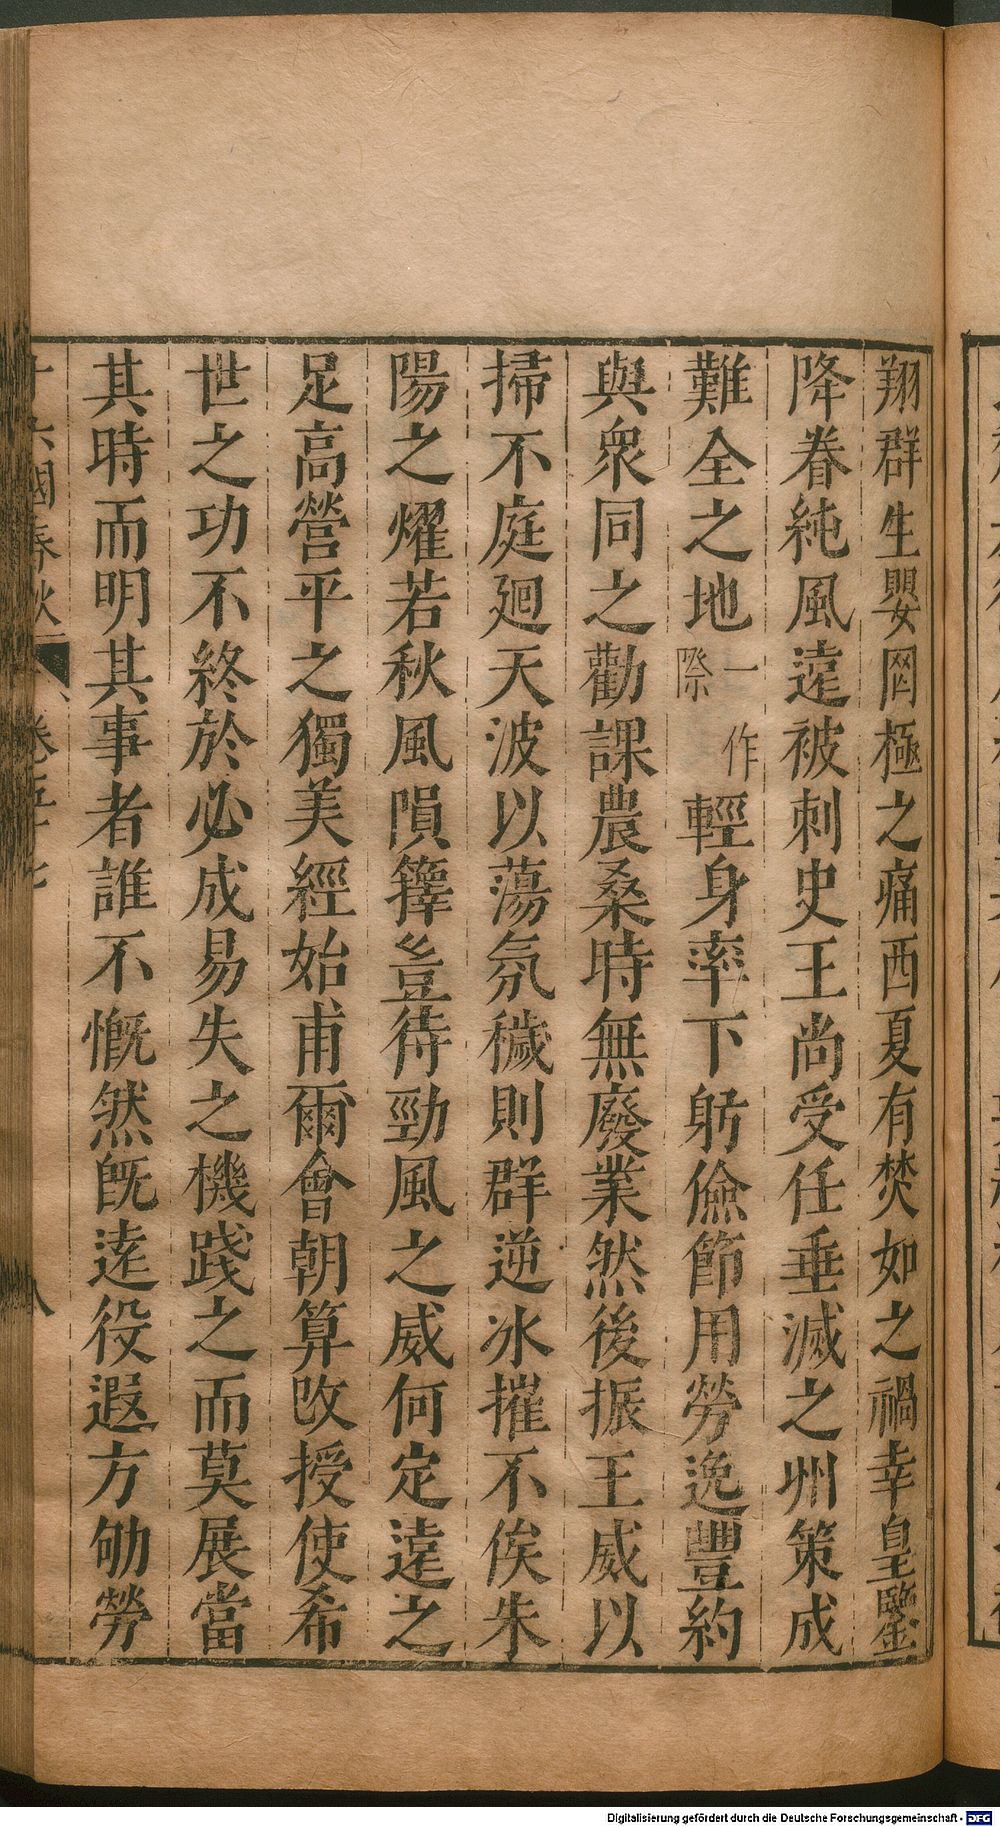 翔群生嬰罔極之痛西夏有焚如之禍幸皇鑒
降眷純風遠被刺史王尚受任垂滅之州策成
難全之地一作際輕身率下躬儉節用勞逸豐約
與衆同之勸課農桑時無廢業然後振王威以
掃不庭廻天波以蕩氛穢則群逆冰摧不俟朱
陽之燿若秋風隕籜豈待勁風之威何定遠之
足高營平之獨美經始甫爾會朝算改授使希
世之功不終於必成易失之機踐之而莫展當
其時而明其事者誰不慨然既逺役遐方劬勞
十六國春秋 卷五十七 八
Digitalisierung gefördert durch die Deutsche Forschungsgemeinschaft - DFG